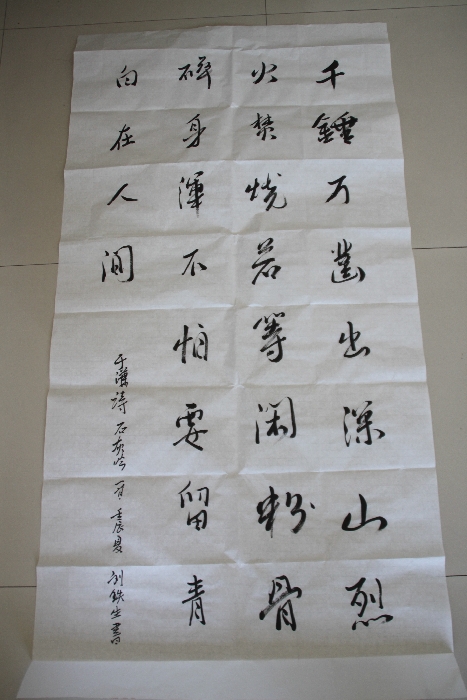 千錘万凿出深山烈
火焚烧若等闲粉骨
碎身渾不怕要留青
白在人间
于謙詩石灰吟一首壬辰夏 刘鉄生書